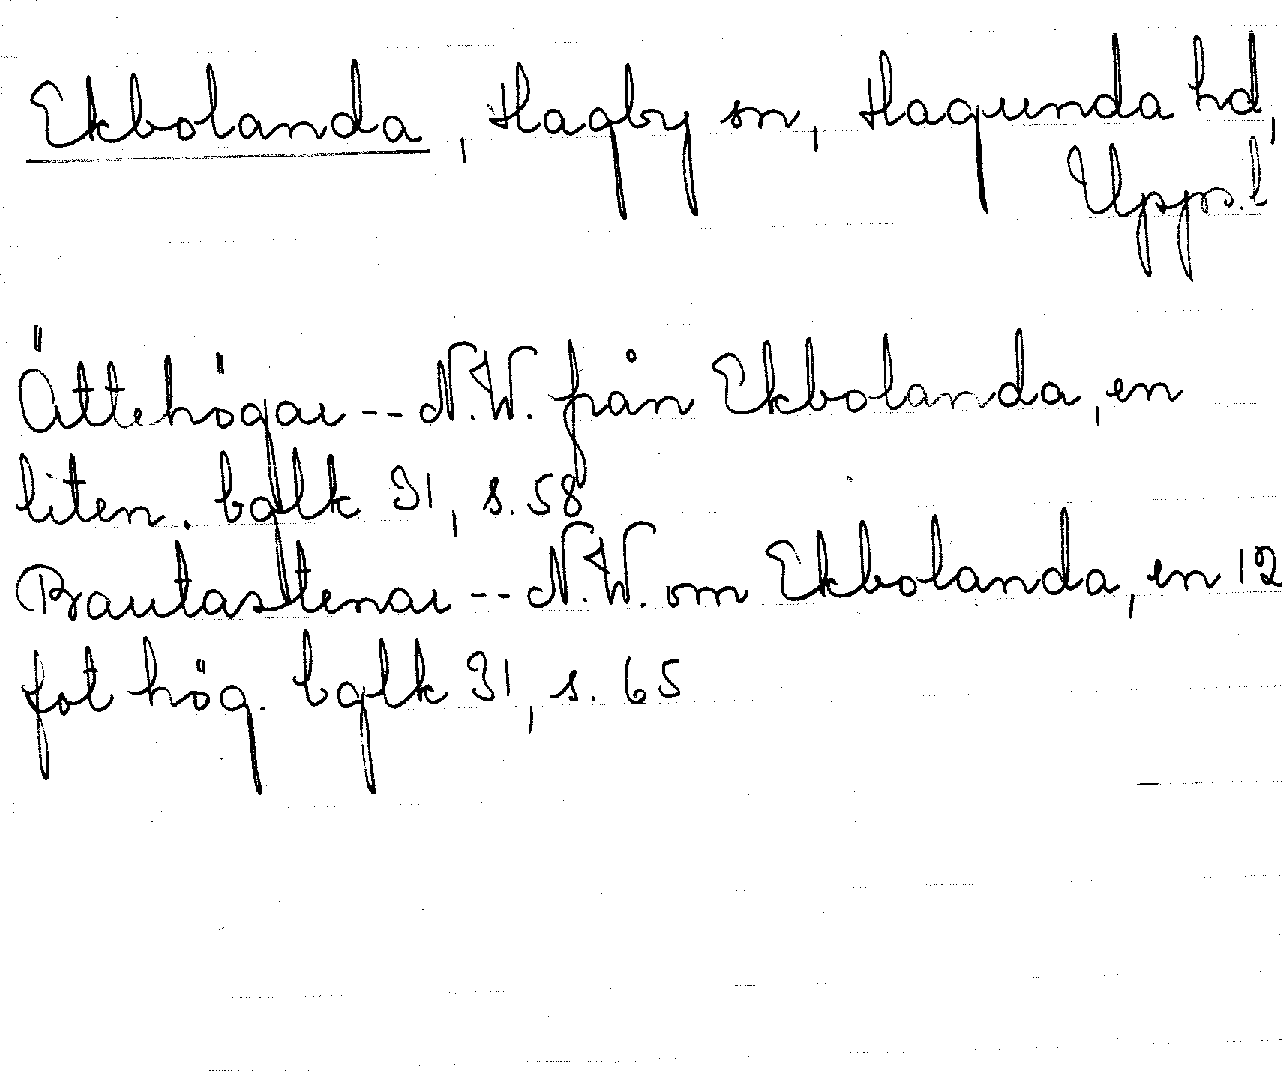 Ekbolanda, Hagby sn, Hagunda hd,
Upps. l
Ättehögar -- N.W. från Ekbolanda, en
liten. bglk 31, s. 58
Bautastenar -- N.W. om Ekbolanda, en 12
fot hög. bglk 31, s. 65